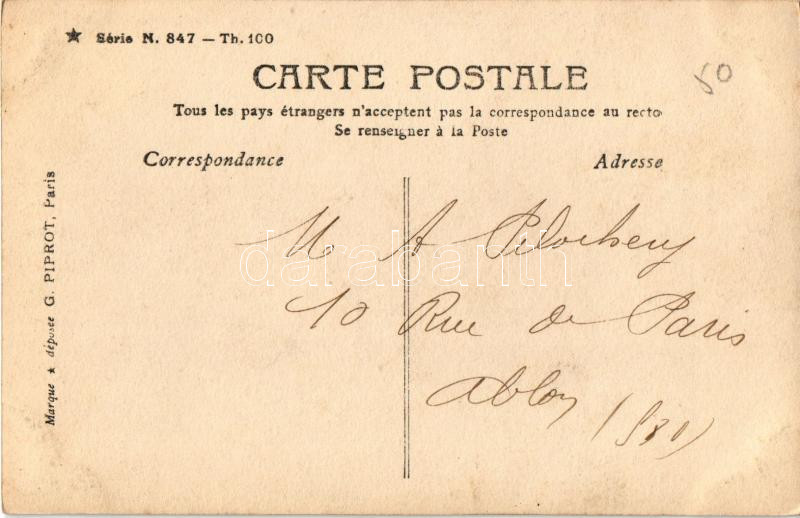 ★ Série N. 847 — Th. 100
CARTE POSTALE
50
Tous les pays étrangers n'acceptent pas la correspondance au recto
Se renseigner à la Poste
Correspondance
Adresse
M A
10 Rue de Paris
Ablon
Marque ★ déposée G. PIPROT, Paris
darabanth